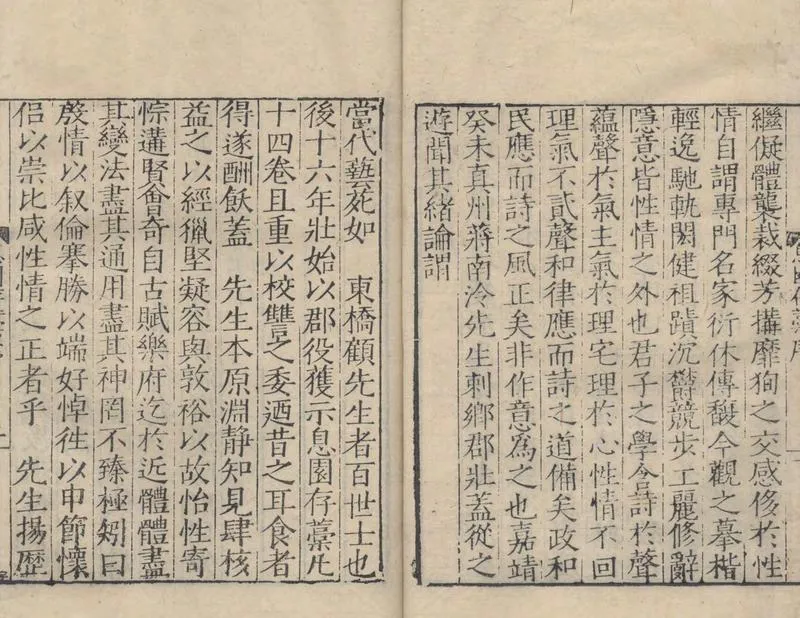 繼儗體襲裁綴芳搆靡狥之交感侈於性
情自謂專門名家衍休傳馥今觀之摹楷
輕逸馳軌閎健祖蹟沉鬱競步工麗修辭
隱意皆性情之外也君子之學含詩於聲
蘊聲於氣主氣於理宅理於心性情不回
理氣不貳聲和律應而詩之道備矣政和
民應而詩之風正矣非作意為之也嘉靖
癸未真州蔣南泠先生刺鄉郡壯蓋從之
遊聞其緒論謂
當代藝苑如 東橋顧先生者百世士也
後十六年壯始以郡役獲示息園存藁凡
十四卷且重以校讐之委迺昔之耳食者
得遂酬飫蓋 先生本原淵靜知見肆核
益之以經獵堅凝容與敦裕以故怡性寄
悰遘賢會奇自古賦樂府迄於近體體盡
其變法盡其通用盡其神罔不臻極矧曰
殷情以叙倫搴勝以端好悼徃以申節懷
侣以崇比咸性情之正者乎 先生揚歷